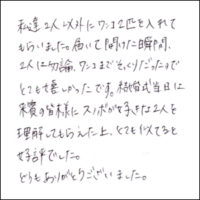 私達2人以外にワンコ2匹を入れて
もらいました。届いて開けた瞬間、
2人に勿論、ワンコまでそっくりだったので
とても嬉しかったです。結婚式当日は
来賓の皆様にスノボが好きな2人を
理解してもらえた上、とても似てると
好評でした。
どうもありがとうございました。